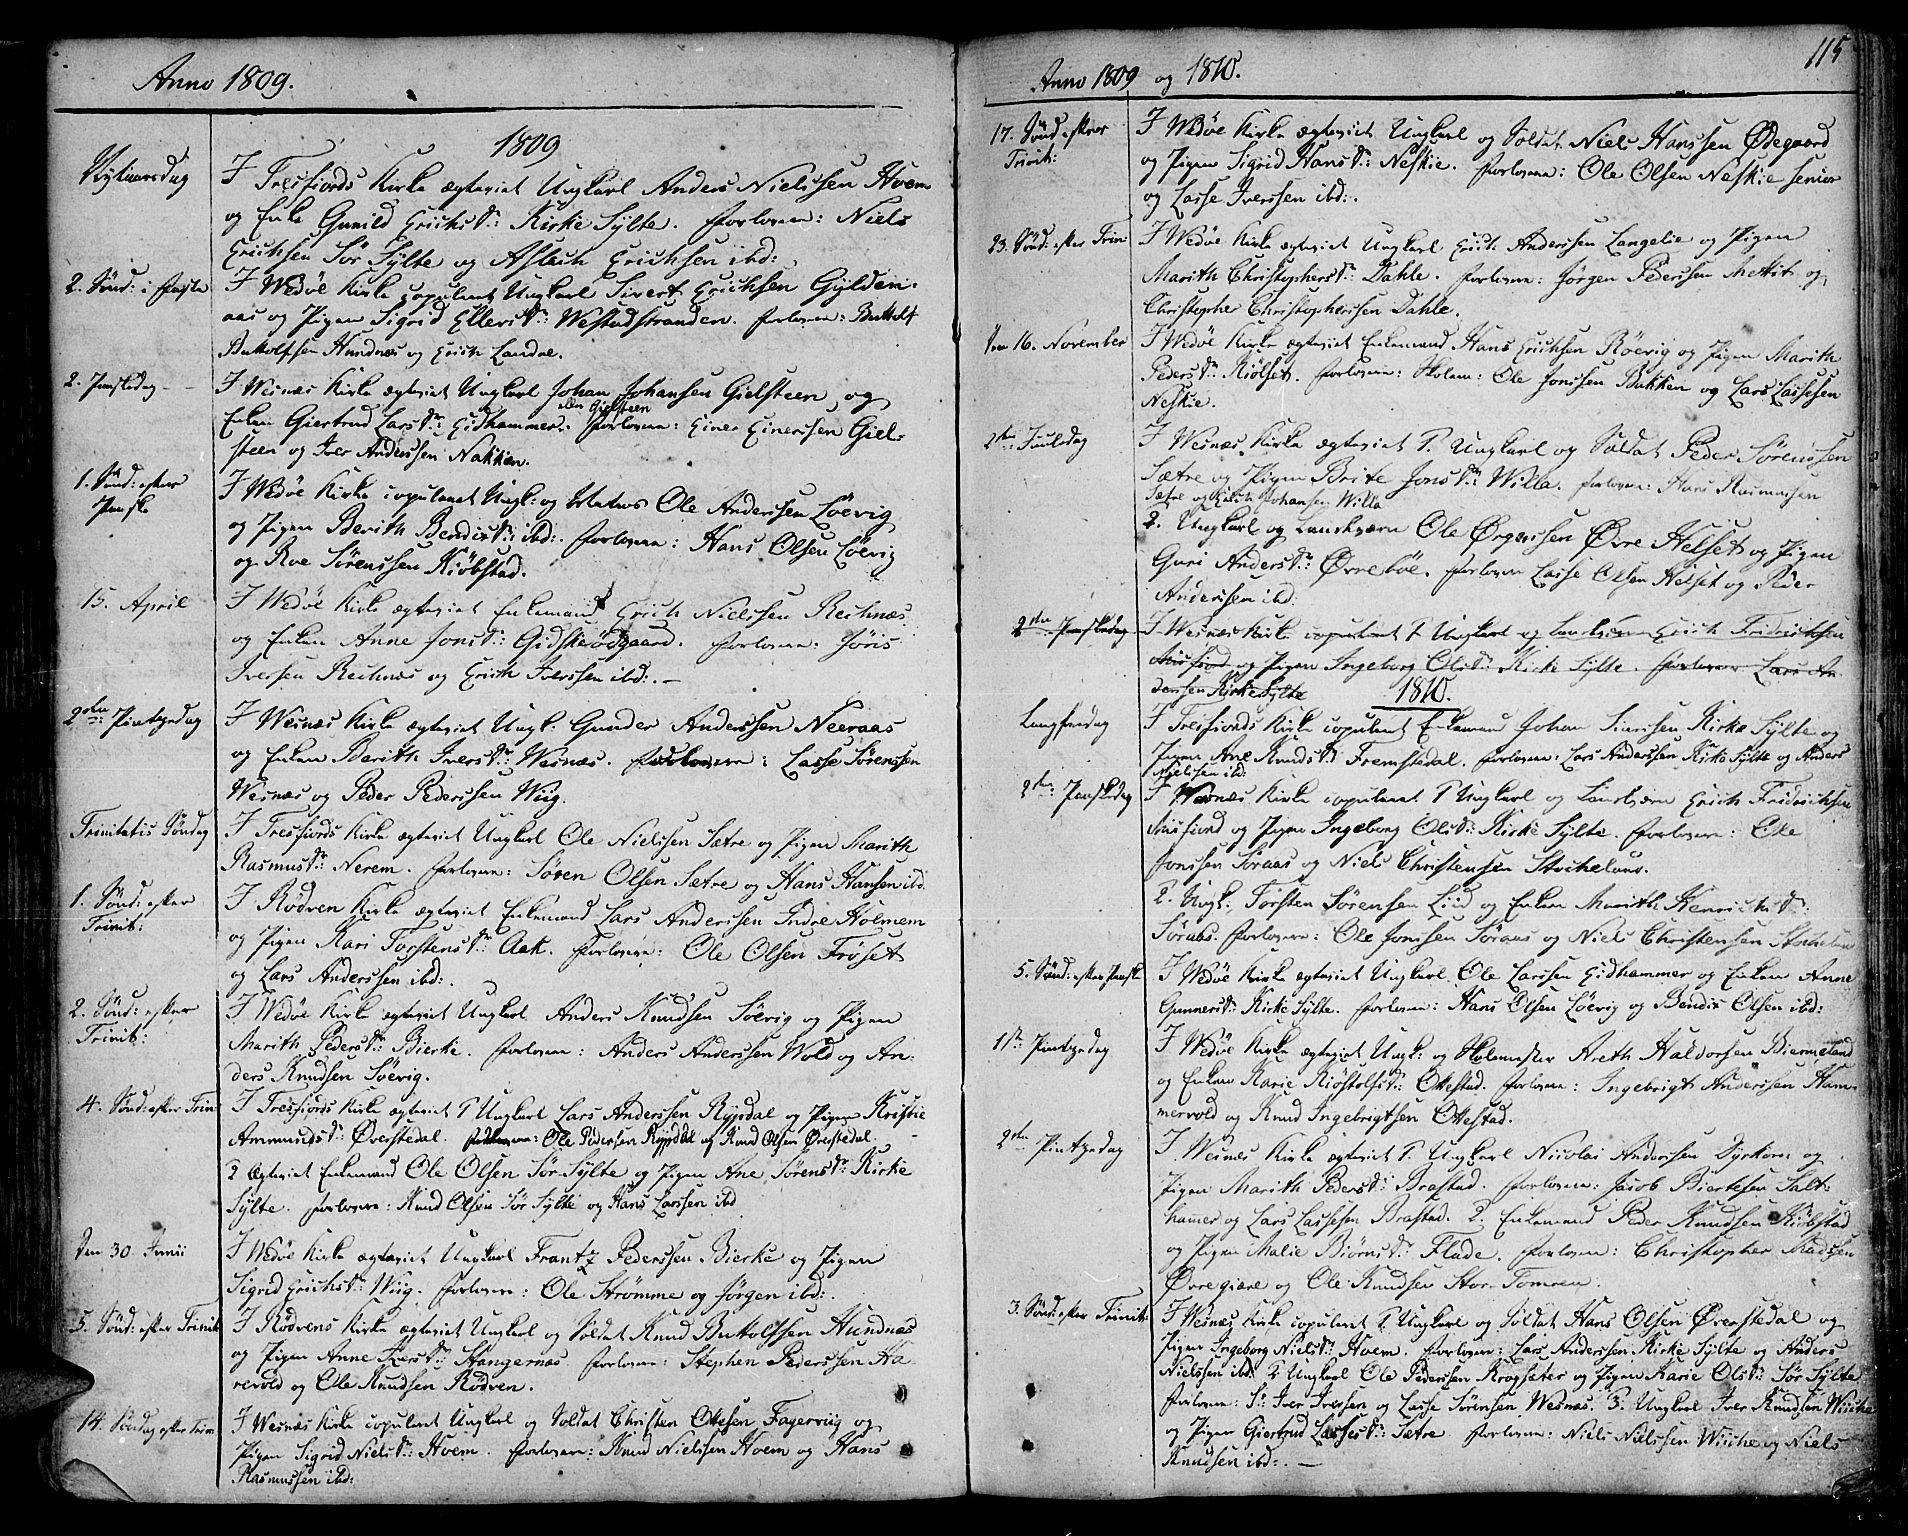 Anno 1809.
1809
Nytaarsdag
I Tresfiords Kirke ægteviet Ungkarl Anders Nielssen Hoem
og Enke Gunild Erichsdr: Kirke Sylte. Forlovere: Niels
Erichsen Sør Sylte og Aslach Erichsen ibd:
2. Sønd: i Faste
I Wedøe Kirke copuleret Ungkarl Sivert Erichsen Gylden-
aas og Pigen Sigrid Ellersdr: Westadstranden. Forlovere: Buttolf
Buttolfsen Hundnæs og Erich Landal.
2. Paaskedag
I Wesnæs Kirke ægteviet Ungkarl Johan Johansen Gielsteen og
Enken Giertrud Larsdr: Gidhammer. Forlovere: Einer Einersen Giel-
steen og Iver Anderssen Nakken.
1. Sønd: efter
Paaske
I Wedøe Kirke copuleret Ungk: og Matros Ole Anderssen Løevig
og Pigen Berith Bendixdr: ibd:. Forlovere: Hans Olsen Løevig
og Roe Sørenssen Kiøbstad.
15. April
I Wedøe Kirke ægteviet Enkemand Erich Nielssen Rechnæs
og Enken Anne Jonsdr: Gidskeødgaard. Forlovere: Jøris
Iversen Rechnæs og Erich Iverssen ibd:.
2den Pintzedag
I Wesnæs Kirke ægteviet Ungk: Gunder Anderssen Neeraas
og Enken Berith Iversdr: Wesnæs. Forlovere: Lasse Sørenssen
Wesnæs og Peder Pederssen Wiig.
Trinitatis Søndag
I Tresfiords Kirke ægteviet Ungkarl Ole Nielssen Sætre og Pigen Marith
Rasmusdr: Nerem. Forlovere: Søren Olsen Sætre og Hans Hansen ibd.
1. Sønd: efter
Trinit:
I Rødven Kirke ægteviet Enkemand Lars Anderssen Indre Holmem
og Pigen Kari Torstensdr: Aak. Forlovere: Ole Olsen Frøset
og Lars Anderssen ibd:.
2. Sønd: efter
Trinit:
I Wedøe Kirke ægteviet Ungkarl Anders Knudsen Søevig og Pigen
Marith Pedersdr: Bierke. Forlovere: Anders Anderssen Wold og An-
ders Knudsen Søevig.
4. Sønd: efter Trin
I Tresfiords Kirke ægteviet 1 Ungkarl Lars Anderssen Rypdal og Pigen Kristie
Ammundsdr: Øverstedal. Forlovere: Ole Pedersen Rypdal og Knud Olsen Øverstedal.
2 ægteviet Enkemand Ole Olsen Sør Sylte og Pigen Ane Sørensdr: Kirke
Sylte. Forlovere: Knud Olsen Sør Sylte og Hans Larssen ibd
Den 30 Junii
I Wedøe Kirke ægteviet Ungkarl Frantz Pederssen Bierke og Pigen
Sigrid Erichsdr: Wiig. Forlovere: Ole Strømme og Jørgen ibd:.
5. Sønd: efter Trinit
I Rødvens Kirke ægteviet Ungkarl og Soldat Knud Buttolfssen Hundnæs
og Pigen Anne Iversdr: Stangernæs. Forlovere: Stephen Pederssen Ha
revold og Ole Knudsen Rødven.
14. Søndag efter Trin
I Wesnæs Kirke copuleret Ungkarl og Soldat Christen Ottesen Fagerviig og
Pigen Sigrid Nielsdr: Hoem. Forlovere: Knud Nielssen Hoem og Hans
Rasmussen ibd:
115
Anno 1809 og 1810.
17. Sønd: efter
Trinit:
I Wedøe Kirke ægteviet Ungkarl og Soldat Niels Hanssen Ødegaard
og Pigen Sigrid Hansdr: Neskie. Forlovere: Ole Olsen Neskie senior
og Lasse Iverssen ibd:.
23. Sønd: efter Trin
I Wedøe Kirke ægteviet Ungkarl Erich Anderssen Langelie og Pigen
Marith Christophersdr: Dahle. Forlovere: Jørgen Pederssen Mettit og
Christopher Christopherssen Dahle.
Den 16. November
I Wedøe Kirke ægteviet Enkemand Hans Erichsen Røevig og Pigen Marith
Pedersdr: Kiølset. Forlovere: Ole Jonssen Bakken og Lars Lassesen
Neskie.
2den Juuldag
I Wesnæs Kirke ægteviet 1. Ungkarl og Soldat Peder Sørenssen
Sætre og Pigen Brite Jonsdr: Willa. Forlovere: Hans Rasmussen
Sætre og Erich Johansen Willa
2. Ungkarl og Landværn Ole Ørgerssen Øvre Helset og Pigen
Guri Andersdr: Øvrebøe. Forlovere Lasse Olsen Helset og Peder
Anderssen ibd:
2den Paaskedag
I Wesnæs Kirke copuleret 1 Ungkarl og Landværn Erich Fridrichsen
og Pigen Ingeborg Olsdr: Kirke Sylte. Forlovere Lars An
derssen Kirke Sylte
1810.
Langfredag
I Tresfiords Kirke copuleret Enkemand Johan Siversen Kirke Sylte og
Pigen Ane Knudsdr: Fremstedal. Forlovere: Lars Anderssen Kirke Sylte og Anders
Nielssen ibd:
2den Paaskedag
I Wesnæs Kirke copuleret 1 Ungkarl og Landværn Erich Fridrichsen
og Pigen Ingeborg Olsdr: Kirke Sylte. Forlovere: Ole
Jonssen Søraas og Niels Christensen
2. Ungk: Torsten Sørensen Liid og Enken Marith Henrichsdr:
Søraas. Forlovere: Ole Jonssen Søraas og Niels Christensen
5. Sønd: efter Paaske
I Wedøe Kirke ægteviet Ungkarl Ole Larssen Gidhammer og Enken Anne
Gunnersdr: Kirke Sylte. Forlovere: Hans Olsen Løevig og Bendix Olsen ibd:
1ste Pintzedag
I Wedøe Kirke ægteviet Ungk: og Areth Haldorsen Biermeland
og Enken Marie Kiøstolfsdr: Ottestad. Forlovere: Ingebrigt Anderssen Ham-
mervold og Knud Ingebrigtsen Ottestad.
2den Pintzedag
I Wesnæs Kirke ægteviet 1 Ungkarl Nicolai Anderssen Dyrkorn og
Pigen Marith Pedersdr: Brastad. Forlovere: Jacob Biertesen Salt-
hammer og Lars Lassesen Brastad. 2. Enkemand Peder Knudssen Kiøbstad
og Pigen Malie Biørnsdr: Flade. Forlovere: Christopher Madssen
Øvregiære og Ole Knudsen Stor Tomren.
3. Sønd: efter Trinit:
I Wesnæs Kirke copuleret 1 Ungkarl og Soldat Hans Olsen Øverstedal og
Pigen Ingeborg Nielsdr: Hoem. Forlovere: Lars Anderssen Kirke Sylte og Anders
Nielssen ibd: 2 Ungkarl Ole Pederssen Krogsæter og Pigen Karie Olsdr: Sør Sylte
Forlovere: Iver Iverssen og Lasse Sørensen Wesnæs. 3. Ungkarl Iver Knudsen Wiiche
og Pigen Giertrud Lassesdr: Sætre Forlovere: Niels Nielssen Wiiche og Niels
Knudsen ibd:.